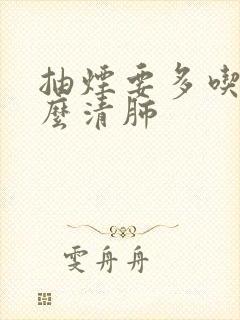 抽煙要多喫
麼清肺
雯舟舟